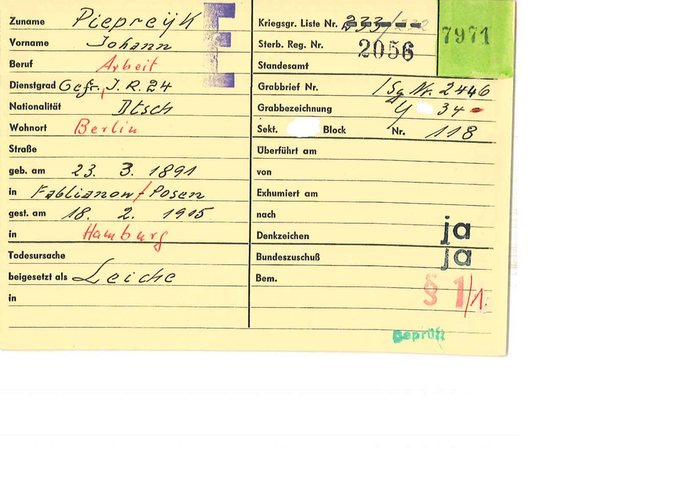 Zuname Piepreÿk
Vorname Johann
Beruf Arbeit
Dienstgrad Gefr., J. R. 24
Nationalität Dtsch
Wohnort Berlin
Straße
geb. am 23. 3. 1891
in Fablianow/Posen
gest. am 18. 2. 1915
in Hamburg
Todesursache
beigesetzt als Leiche
in
E
Kriegsgr. Liste Nr. 233/
7971
Sterb. Reg. Nr. 2056
Standesamt
Grabbrief Nr. /Sg Nr. 2446
Grabbezeichnung Y 34
Sekt. Block Nr. 118
Überführt am
von
Exhumiert am
nach
Denkzeichen ja
Bundeszuschuß ja
Bem. § 1/1.
geprüft